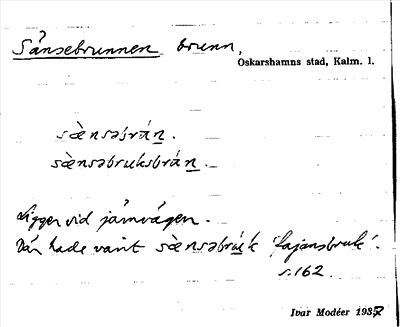 Sånsebrunnen brunn,
Oskarshamns stad, Kalm. l.
sæ̀nsəbrán.
sæ̀nsəbruksbrán.
Ligger vid järnvägen.
Där hade varit sæ̀nsəbruk 'fajansbruk'.
s. 162.
Ivar Modéer 1937